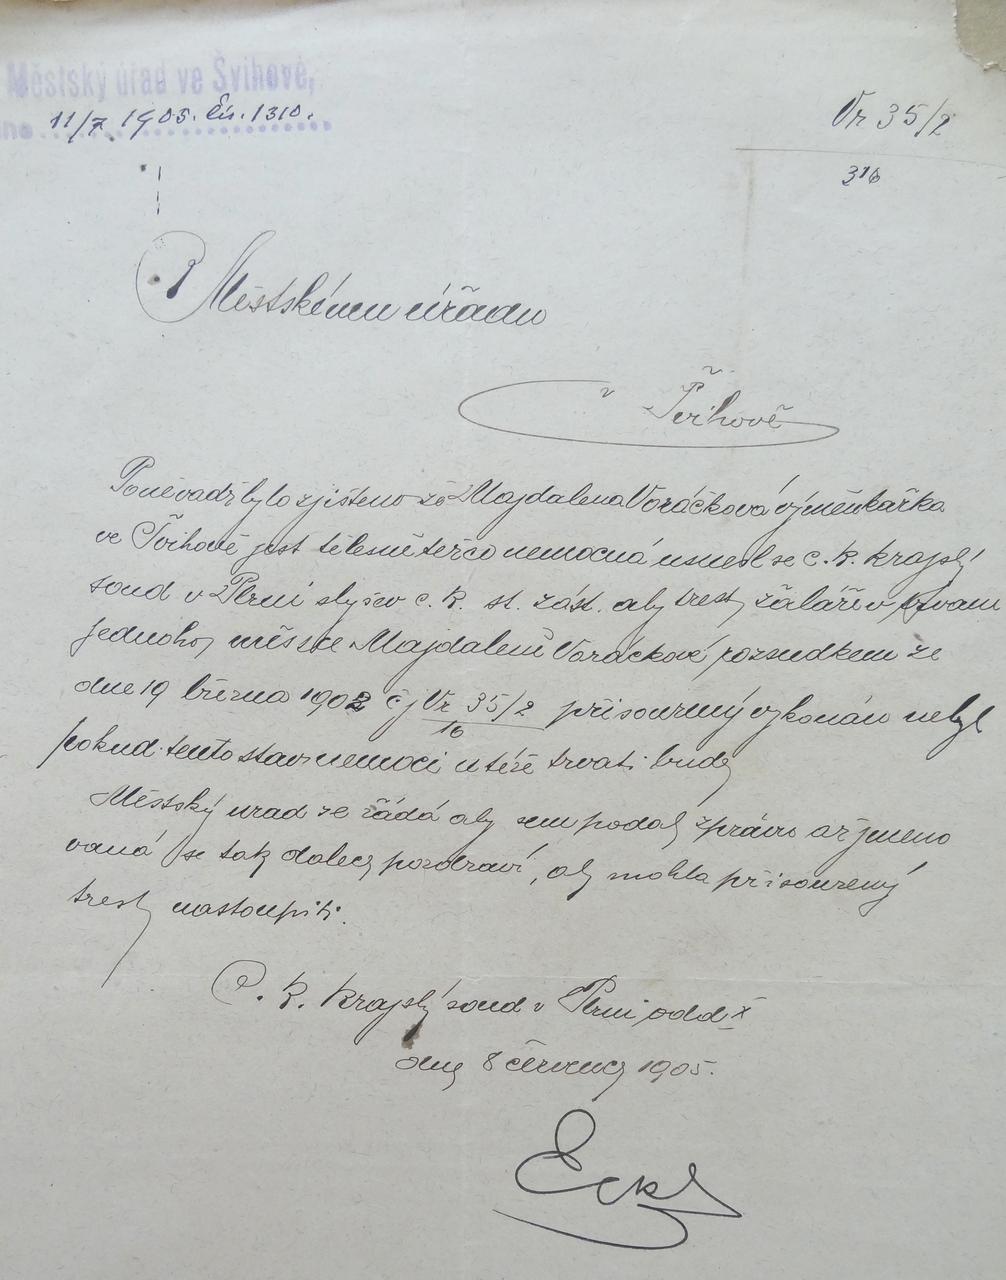 Městský úřad ve Švihově,
11/7 1905. Čís. 1310.
Vr 35/2
316
Městskému úřadu
v Švihově
Poněvadž bylo zjištěno že Majdalena Voráčková výměnkářka
ve Švihově jest tělesně těžce nemocná usnesl se c. k. krajský
soud v Plzni slyšev c. k. st. zást. aby trest žaláře v trvání
jednoho měsíce Majdaleně Voráčkové rozsudkem ze
dne 19 března 1902 čj Vr 35/2 přisouzený vykonán nebyl
16
pokud tento stav nemoci u téže trvati bude
Městský úrad se žádá aby sem podal zprávu až jmeno
vaná se tak dalece pozdraví, aby mohla přisouzený
trest nastoupiti.
C. k. krajský soud v Plzni odd. X
dne 8 července 1905.
Eckl